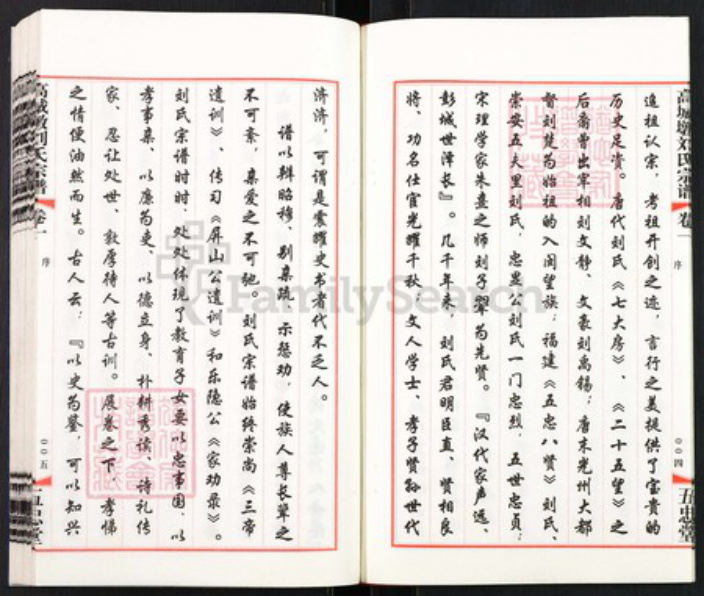 追祖认宗，考祖开创之迹，言行之美提供了宝贵的
历史足资。唐代刘氏《七大房》、《二十五望》之
后裔曾出宰相刘文静、文豪刘禹锡；唐末光州大都
督刘楚为始祖的入闽望族；福建《五忠八贤》刘氏、
崇安五夫里刘氏，忠显公刘氏一门忠烈，五世忠贞；
宋理学家朱熹之师刘子翚为先贤。『汉代家声远，
彭城世泽长』。几千年来，刘氏君明臣直、贤相良
将、功名仕宦光耀千秋，文人学士、孝子贤孙世代
高城墩刘氏宗谱
卷一
序
〇〇四
五忠堂
济济，可谓是震耀史书者代不乏人。
谱以辩昭穆、别亲疏、示惩劝，使族人尊长辈之
不可紊，亲爱之不可弛。刘氏宗谱始终崇尚《三帝
遗训》、传习《屏山公遗训》和乐隐公《家劝录》。
刘氏宗谱时时、处处体现了教育子女要以忠事国、以
孝事亲、以廉为吏、以德立身、朴耕秀读、诗礼传
家、忍让处世、敦厚待人等古训。展卷之下，孝悌
之情便油然而生。古人云：『以史为鉴，可以知兴
高城墩刘氏宗谱
卷一
序
〇〇五
五忠堂
FamilySearch